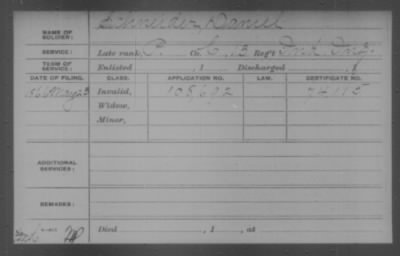 NAME OF SOLDIER: Schneider, Daniel
SERVICE: Late rank, P. Co. C, 13 Reg't Ind. Inf.
TERM OF SERVICE: Enlisted , 1 Discharged , 1
DATE OF FILING. CLASS. APPLICATION NO. LAW. CERTIFICATE NO.
1866 May 23 Invalid, 108,692 74115
Widow,
Minor,
ADDITIONAL SERVICES:
REMARKS:
Died , 1 , at